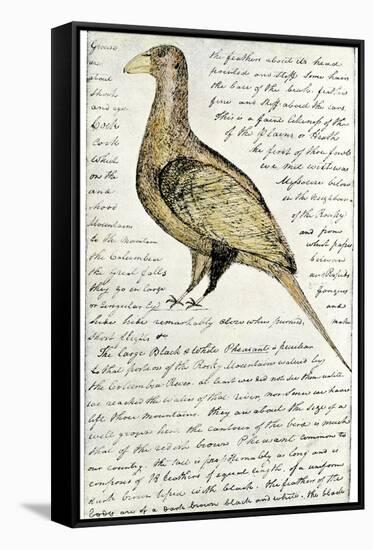 Grouse the feathers about its head
are pointed and stiff some hairs
about the base of the beak. feathers
short fine and stiff about the ears.
and eye This is a faint likeness of the
Cock of the Plains or Heath
cock the first of those fowls
which we met with was
on the Missouri below
and in the Neighbour
of the Rocky
Mountains and from
to the mountain which passes
the Columbia between
the Great falls and Rapids
they go in large Gangues
or Singular ly and
hide hide remarkably close when pursued, makes
short flights &
The large Black & White Pheasant is peculiar
to that portion of the Rocky Mountains watered by
the Columbia River. at least we did not see them untill
we reached the waters of that river, nor since we have
left those Mountains. they are about the Size of a
well grown hen. the contour of the bird is much
that of the redish brown Pheasant common to
our country. the tail is proportionably as long and is
composed of 18 feathers of equal length, of a uniform
dark brown tiped with black. the feathers of the
body are of a dark brown black and white. the black